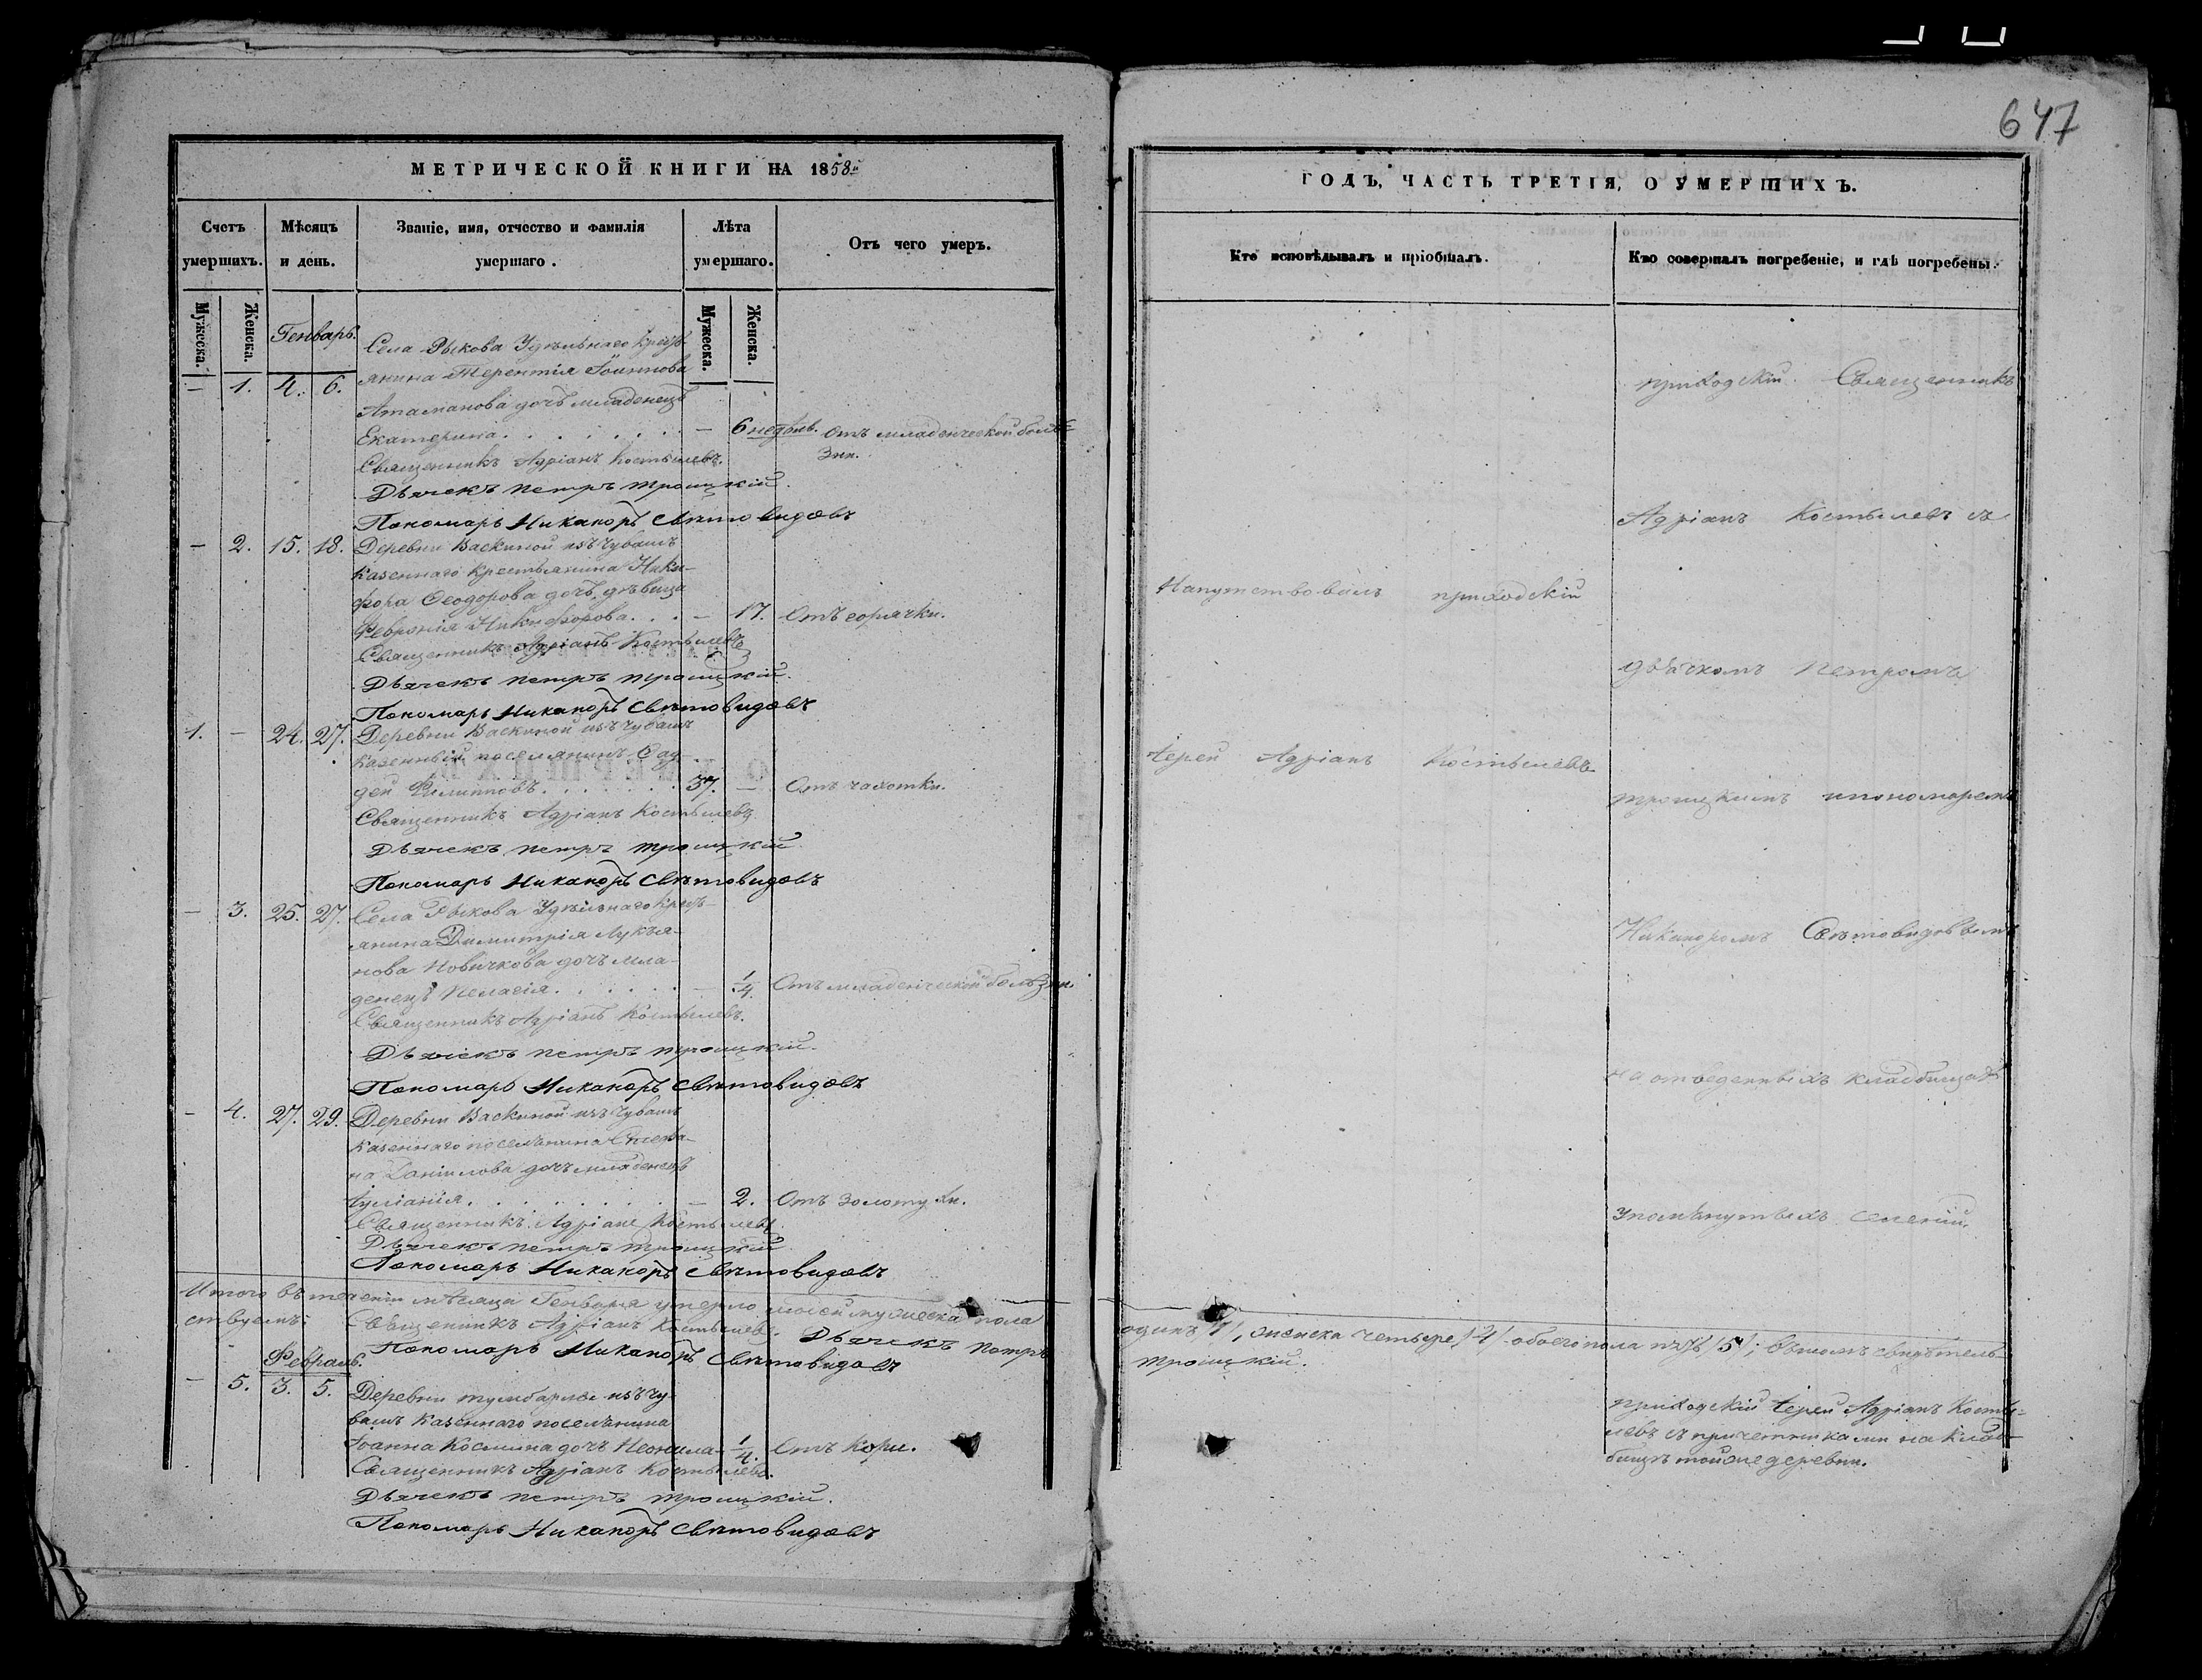 647
МЕТРИЧЕСКОЙ КНИГИ НА 1858й
Счетъ умершихъ.
Мѣсяцъ и день.
Званіе, имя, отчество и фамилія умершаго.
Лѣта умершаго.
Отъ чего умеръ.
Мужеска. Женска. Мужеска. Женска.
Генварь.
— 1. 4. 6. Села Рыкова Удѣльнаго крест-
янина Терентія Іоаннова
Атаманова дочь младенецъ
Екатерина. — 6 недѣль. Отъ младенческой болѣ-
зни.
Священникъ Адріанъ Костылевъ.
Дьячекъ Петръ Троицкій.
Пономарь Никаноръ Свѣтовидовъ
— 2. 15. 18. Деревни Васкиной изъ Чувашъ
казеннаго крестьянина Ники-
фора Ѳеодорова дочь дѣвица
Февронія Никифорова. — 17. Отъ горячки.
Священникъ Адріанъ Костылевъ
Дьячекъ Петръ Троицкій.
Пономарь Никаноръ Свѣтовидовъ
1. — 24. 27. Деревни Васкиной изъ Чувашъ
казенный поселянинъ Фад-
дей Филипповъ. 37. — Отъ чахотки.
Священникъ Адріанъ Костылевъ
Дьячекъ Петръ Троицкій
Пономарь Никаноръ Свѣтовидовъ
— 3. 25. 27. Села Рыкова Удѣльнаго крест-
янина Димитрія Лукья-
нова Новичкова дочь мла-
денецъ Пелагія. — 1/4. Отъ младенческой болѣзни.
Священникъ Адріанъ Костылевъ.
Дьячекъ Петръ Троицкій.
Пономарь Никаноръ Свѣтовидовъ
— 4. 27. 29. Деревни Васкиной изъ Чувашъ
казеннаго поселянина Стефа-
на Даніилова дочь младенецъ
Іуліанія. — 2. Отъ золотухи.
Священникъ Адріанъ Костылевъ
Дьячекъ Петръ Троицкій
Пономарь Никаноръ Свѣтовидовъ
Итого въ теченіи мѣсяца Генваря умерло людей мужеска пола
ствуемъ: Священникъ Адріанъ Костылевъ. Дьячекъ Петръ
Пономарь Никаноръ Свѣтовидовъ
Февраль.
— 5. 3. 5. Деревни Тумбарлы изъ Чу-
вашъ казеннаго поселянина
Іоанна Космина дочь Неонила — 1/4. Отъ кори.
Священникъ Адріанъ Костылевъ.
Дьячекъ Петръ Троицкій.
Пономарь Никаноръ Свѣтовидовъ
ГОДЪ, ЧАСТЬ ТРЕТІЯ, О УМЕРШИХЪ.
Кто исповѣдывалъ и пріобщалъ.
Кто совершалъ погребеніе, и гдѣ погребены.
Напутствовалъ приходскій
Іерей Адріанъ Костылевъ
приходскій Священникъ
Адріанъ Костылевъ съ
дьячкомъ Петромъ
Троицкимъ и пономаремъ
Никаноромъ Свѣтовидовымъ
на отведенныхъ кладбищахъ
упомянутыхъ селеній.
одинъ /1/, женска четыре /4/ обоего пола пять /5/; въ томъ свидѣтель-
Троицкій.
приходскій Іерей Адріанъ Косты-
левъ съ причетниками на клад-
бищѣ той же деревни.